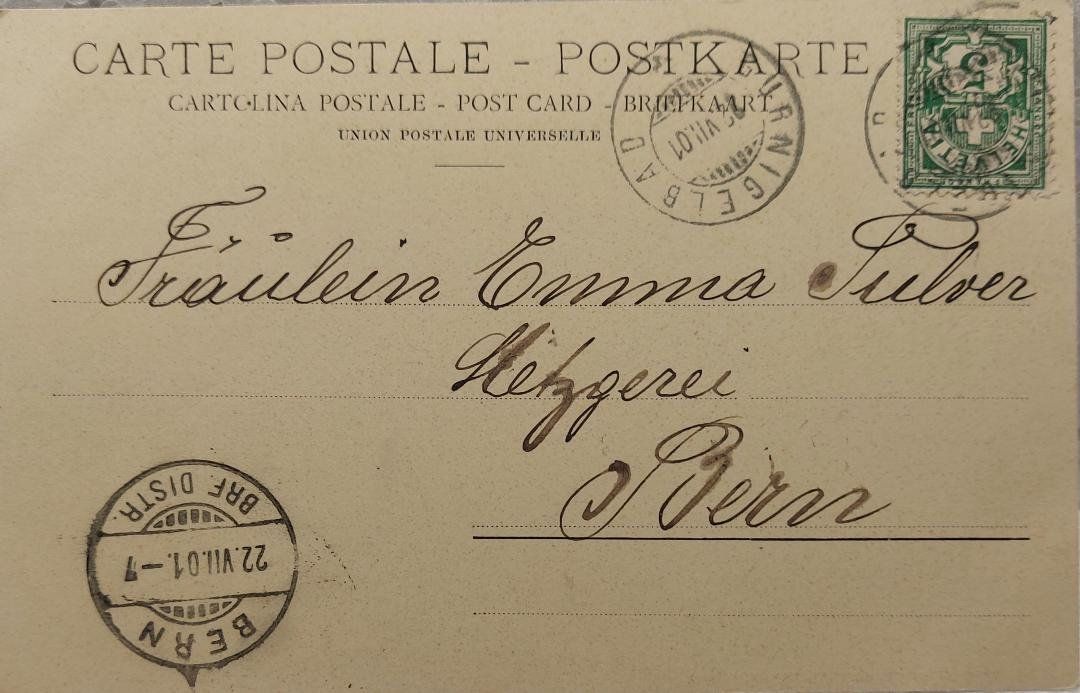 CARTE POSTALE - POSTKARTE
CARTOLINA POSTALE - POST CARD - BRIEFKAART
UNION POSTALE UNIVERSELLE
GURNIGELBAD
VII.01
5
HELVETIA
Fräulein Emma Tulver
Metzgerei
Bern
BRF. DISTR.
22.VII.01.-7
BERN